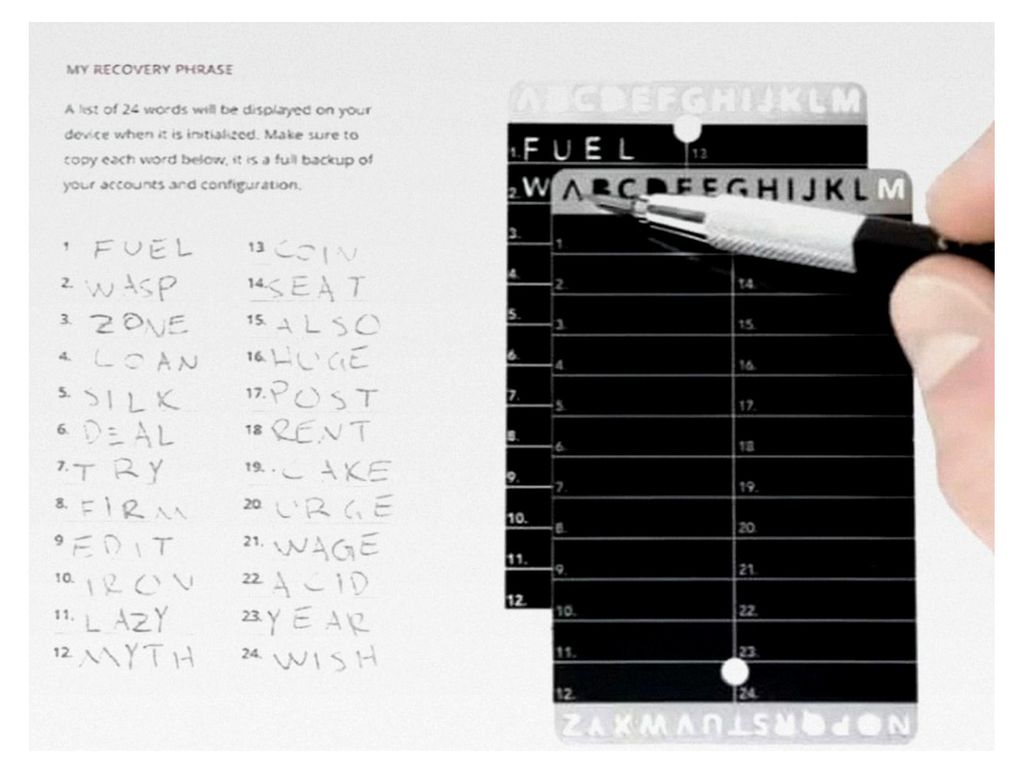 MY RECOVERY PHRASE
A list of 24 words will be displayed on your
device when it is initialized. Make sure to
copy each word below, it is a full backup of
your accounts and configuration.
1 FUEL
2. WASP
3. ZONE
4. LOAN
5. SILK
6. DEAL
7. TRY
8. FIRM
9 EDIT
10. IRON
11. LAZY
12. MYTH
13 COIN
14. SEAT
15. ALSO
16. HUGE
17. POST
18 RENT
19.
20 URGE
21. WAGE
22 ACID
23. YEAR
24. WISH
ABCDEFGHIJKLM
1. FUEL 13
2. W
3.
4.
5.
6.
7.
8.
9.
10.
11.
12.
ABCDEFGHIJKLM
1
2. 14.
3. 15.
4. 16.
5. 17.
6. 18
7. 19.
8. 20.
9. 21.
10. 22.
11. 23.
12. 24.
NOPQRSTUVWXYZ